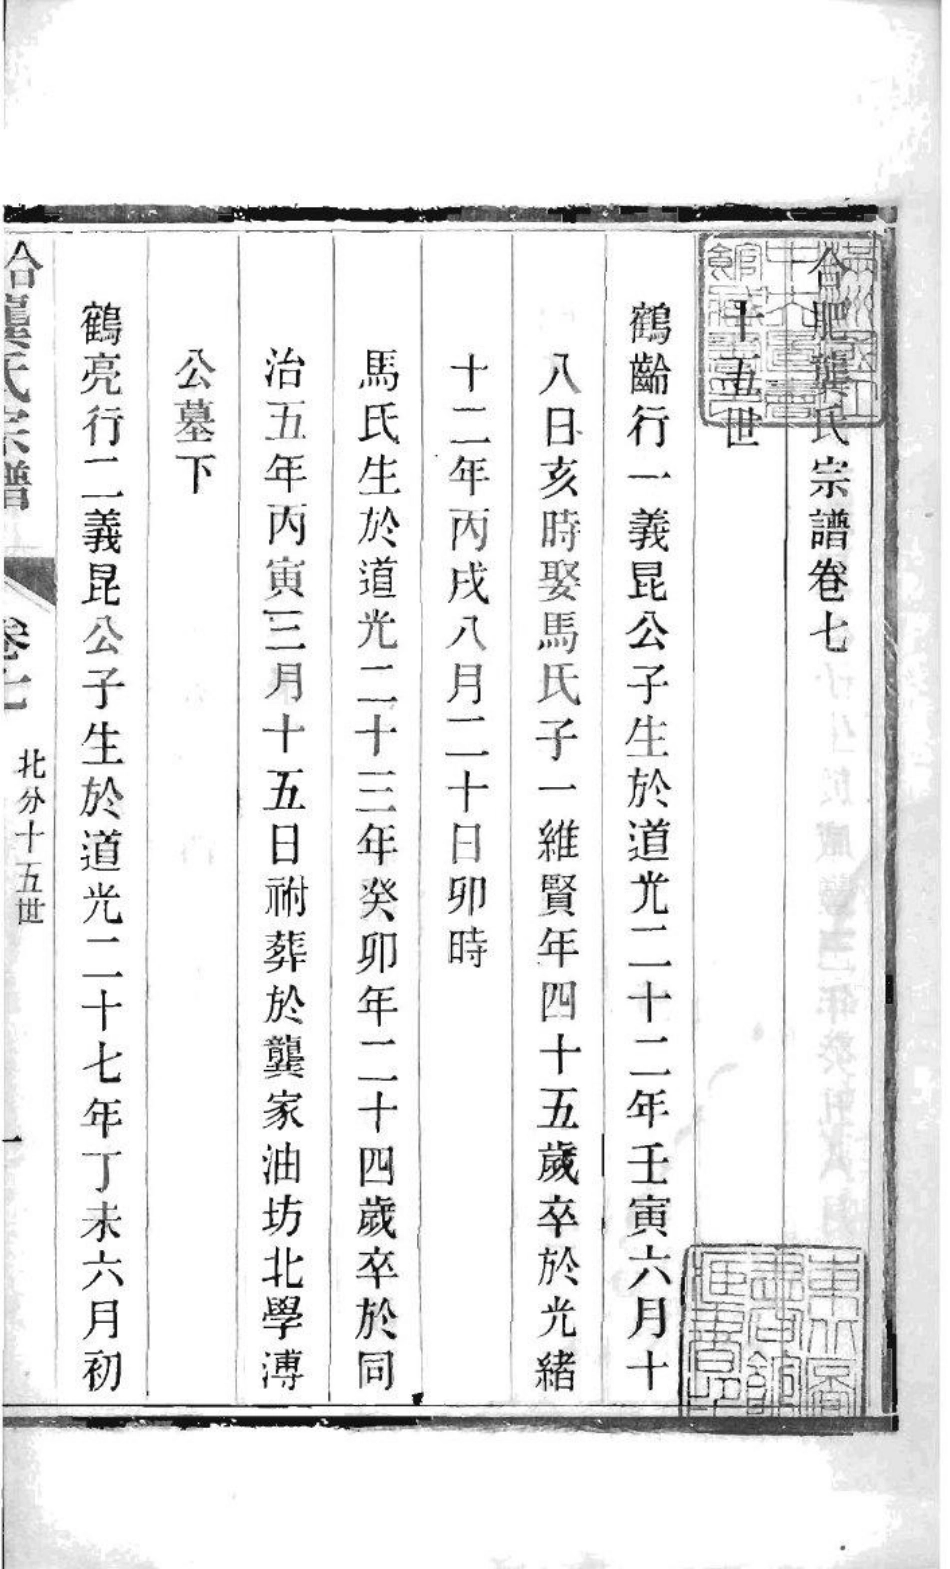 合肥龔氏宗譜卷七
十五世
鶴齡行一義昆公子生於道光二十二年壬寅六月十
八日亥時娶馬氏子一維賢年四十五歲卒於光緒
十二年丙戌八月二十日卯時
馬氏生於道光二十三年癸卯年二十四歲卒於同
治五年丙寅三月十五日祔葬於龔家油坊北學溥
公墓下
鶴亮行二義昆公子生於道光二十七年丁未六月初
合龔氏宗譜
卷七
北分十五世
一